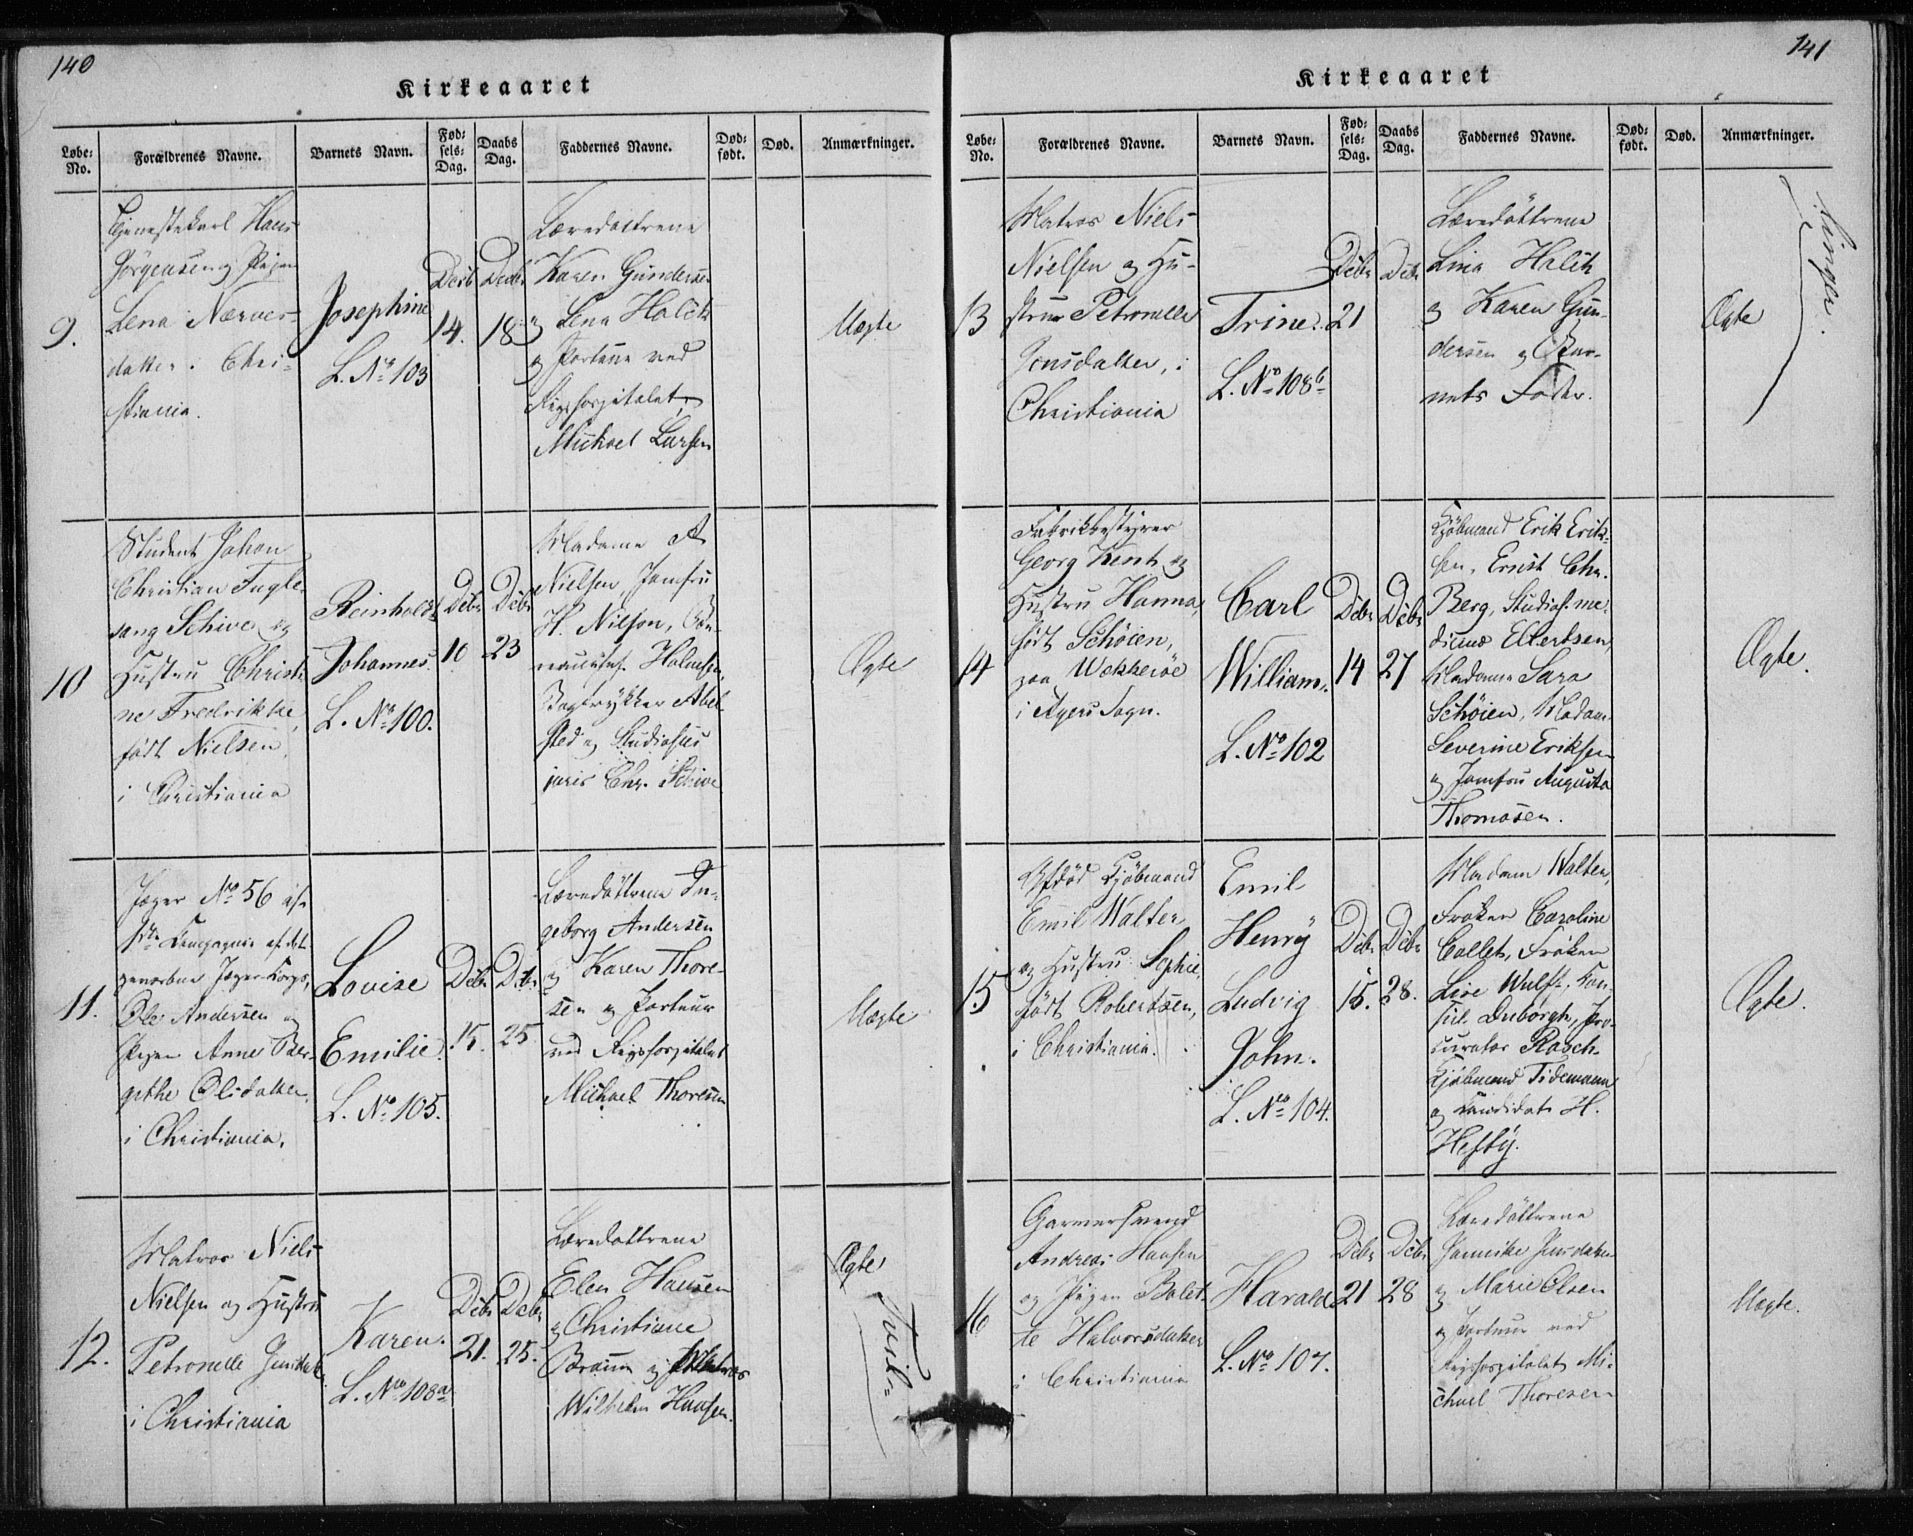 140
Kirkeaaret
Løbe-No.
Forældrenes Navne.
Barnets Navn.
Fødselsdag.
Daabs Dag.
Faddernes Navne.
Dødfødt.
Død.
Anmærkninger.
9.
Tjenestekarl Hans
Jörgensen og Pigen
Lena
datter. Chri-
stiania.
Josephine
L. No 103
Decb
14.
Decbr
18
Læredøttrene
Karen Gundersen
og Lena Holck
og Portneur ved
Rigshospitalet
Michael Larsen
Uægte
10
Student Johan
Christian Fugle-
sang Schive og
Hustru Christi-
ne Fredrikke,
født Nielsen,
i Christiania
Reinholdt
Johannes.
L. No 100.
Dcbr
10
Dcbr
23
Madame A
Nielsen, Jomfru
H. Nilson,
Holmsen,
Bogtrykker Abel-
sted og Studiosus
juris Chr. Schive
Ægte
11.
Jæger No 56 af
Compagnie af det
Jæger-Korps,
Ole Andersen og
Pigen Anne Ber-
gitthe Olsdatter,
i Christiania.
Lovise
Emilie.
L. No 105.
Dcbr
15.
Dcbr
25
Læredöttrene In-
geborg Andersen
og Karen Thore-
sen og Portneur
ved Rigshospitalet
Michael Thoresen
Uægte
12.
Matros Niels
Nielsen og Hustru
Petronelle Jensdatt.
i Christiania
Karen.
L. No 108a
Dcbr
21.
Dcbr
25.
Læredøttrene
Elen Hansen
og Christiane
Braun og Matros
Wilhelm Hansen.
Ægte
Tvil-
141
Kirkeaaret
Løbe-No.
Forældrenes Navne.
Barnets Navn.
Fødselsdag.
Daabs Dag.
Faddernes Navne.
Dødfødt.
Død.
Anmærkninger.
13
Matros Niels
Nielsen og Hu-
stru Petronelle
Jensdatter, i
Christiania
Trine.
L. No 108b
Dcbr
21
Dcbr
Læredöttrene
Lina Holck
og Karen Gun-
dersen og Bar-
nets Fader.
Ægte
linger.
14
Fabrikbestyrer
Georg Kent og
Hustru Hanna,
født Schöien,
paa Wækkeröe
i Agers Sogn.
Carl
William.
L. No 102
Dcbr
14
Dcbr
27
Kjöbmand Erik Erik-
sen, Ernst Chr.
Berg, Studios. me-
dicinæ Ellertsen,
Madame Sara
Schöien, Madam
Severine Eriksen
og Jomfru Augusta
Thomasen.
Ægte.
15
Afdöd Kjöbmand
Emil Walter
og Hustru Sophie,
født Robertsen,
i Christiania.
Emil
Henry
Ludvig
John.
L. No 104.
Dcbr
15.
Dcbr
28.
Madam Walter,
Fröken Caroline
Collett, Fröken
Lise Wulff, Kon-
sul Duborgh, Pro-
curator Rasch
Kjöbmand Tidemann
og Candidat H.
Heftÿ.
Ægte.
16
Garversvend
Andreas Hansen
og Pigen Bolet-
te Halvorsdatter
i Christiania
Harald
L. No 107.
Dcbr
21
Dcbr
28
Læredöttrene
Jensdatter
og Marie Olsen
og Portneur ved
Rigshospitalet Mi-
chael Thoresen
Uægte.